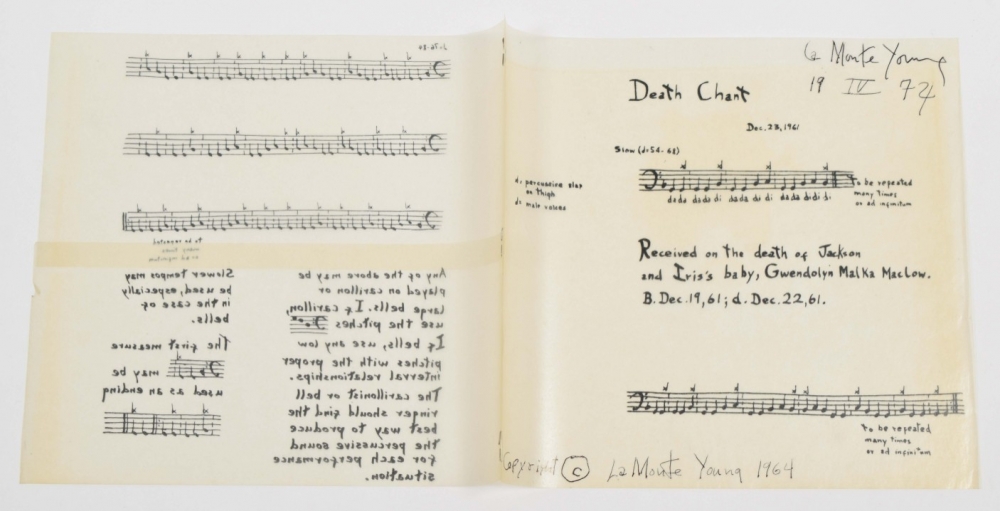 to be repeated
many times
or ad infinitum
Any of the above may be
played on carillon or
large bells. If carillon,
use the pitches
If bells, use any low
pitches with the proper
interval relationships.
The carillonist or bell
ringer should find the
best way to produce
the percussive sound
for each performance
situation.
Slower tempos may
be used, especially
in the case of
bells.
The first measure
may be
used as an ending
La Monte Young
19 IV 74
Death Chant
Dec. 23, 1961
Slow
percussive slap
on thigh
male voices
da da di da da di di da da di di di
to be repeated
many times
or ad infinitum
Received on the death of Jackson
and Iris's baby, Gwendolyn Malka MacLow.
B. Dec. 19, 61; d. Dec. 22, 61.
to be repeated
many times
or ad infinitum
Copyright © La Monte Young 1964